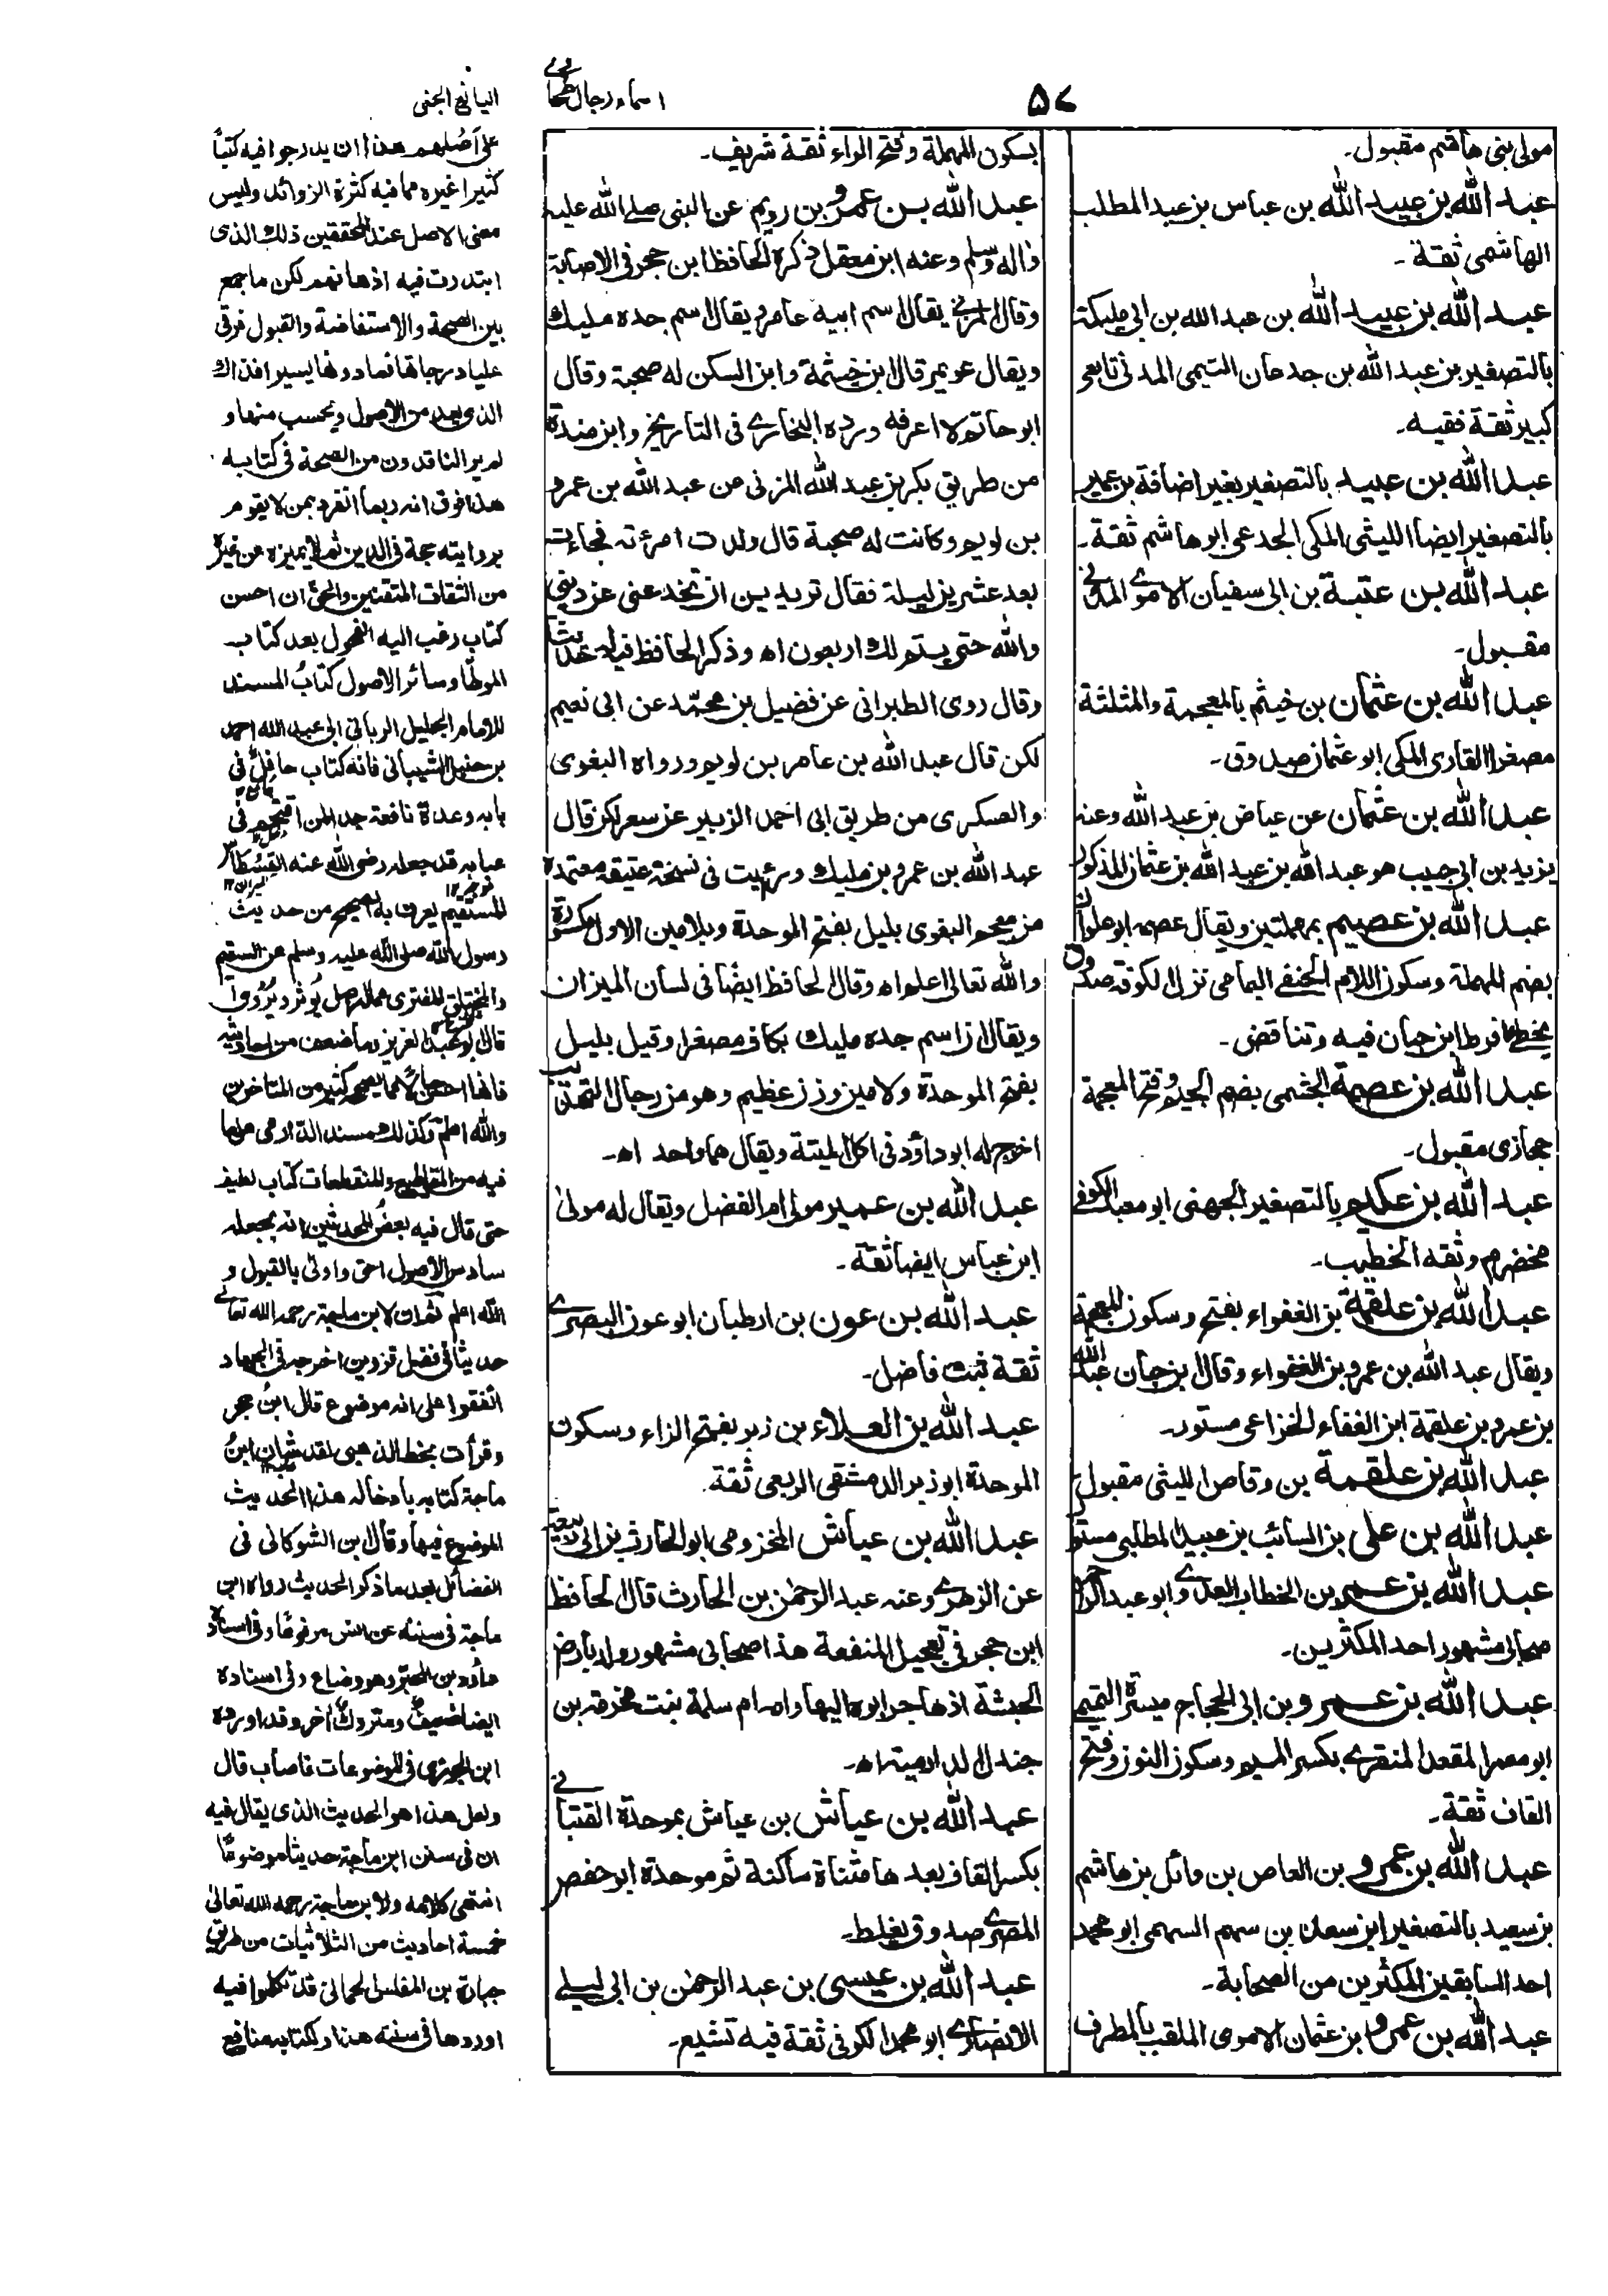 ٥٧
اسماء رجال طحاوے
اليانع الجنى
مولى بنى هاشم مقبول۔
عبد الله بن عبيد الله بن عباس بن عبد المطلب
الهاشمى ثقة۔
عبد الله بن عبيد الله بن عبد الله بن ابى مليكة
بالتصغير بن عبد الله بن جدعان التيمى المدنى تابعى
كبير ثقة فقيه۔
عبد الله بن عبيد بالتصغير بغير اضافة بن عمير
بالتصغير ايضا الليثى المكى الجدعى ابو هاشم ثقة۔
عبد الله بن عتبة بن ابى سفيان الاموے المدنى
مقبول۔
عبد الله بن عثمان بن خيثم بالمعجمة والمثلثة
مصغرا القارى المكى ابو عثمان صدوق۔
عبد الله بن عثمان عن عياض بن عبد الله وعنه
يزيد بن ابى حبيب هو عبد الله بن عبد الله بن عثمان المذكور
عبد الله بن عصيم بمهملتين ويقال عصمه ابو علوان
بضم المهملة وسكون اللام الحنفے اليمامى نزل الكوفة صدوق
يخطئ افرط ابن حبان فيه وتناقض۔
عبد الله بن عصمة الجشمى بضم الجيم وفتح المعجمة
حجازى مقبول۔
عبد الله بن عكيم بالتصغير الجهنى ابو معبد الكوفے
مخضرم وثقه الخطيب۔
عبد الله بن علقمة بن الفغواء بفتح وسكون المعجمة
ويقال عبد الله بن عمرو بن الفغواء وقال ابن حبان عبد الله
بن عمرو بن علقمة ابن الفغاء الخزاعى مستور۔
عبد الله بن علقمة بن وقاص الليثى مقبول
عبد الله بن على بن السائب بن عبيد المطلبى مستور
عبد الله بن عمر بن الخطاب العدوے ابو عبد الرحمن
صحابى مشهور احد المكثرين۔
عبد الله بن عمرو بن ابى الحجاج ميسرة التميمے
ابو معمر المقعد المنقرے بكسر الميم وسكون النون وفتح
القاف ثقة۔
عبد الله بن عمرو بن العاص بن وائل بن هاشم
بن سعيد بالتصغير ابن سعد بن سهم السهمى ابو محمد
احد السابقين المكثرين من الصحابة۔
عبد الله بن عمرو ابن عثمان الاموى الملقب بالمطرف
بسكون المهملة وفتح الراء ثقة شريف۔
عبد الله بن عمرو بن رويم عن النبى صلے الله عليه
واله وسلم وعنه ابن معقل ذكره الحافظ ابن حجر فى الاصابة
وقال المزنے يقال اسم ابيه عامر ويقال اسم جده مليك
ويقال عويمر قال ابن خيثمة وابن السكن له صحبة وقال
ابو حاتم لا اعرفه ورده البخارے فى التاريخ وابن مندة
من طريق بكر بن عبد الله المزنى من عبد الله بن عمرو
بن لويم وكانت له صحبة قال ولدت امرءته فجاءت
بعد عشرين ليلة فقال تريدين ان تخدعنى عن دينى
والله حتى يستم لك اربعون اه وذكر الحافظ فيه حديث
وقال روى الطبرانى عن فضيل بن محمد عن ابى نعيم
لكن قال عبد الله بن عامر بن لويم ورواه البغوى
والعسكرى من طريق ابى احمد الزبير عن سعر لكن قال
عبد الله بن عمرو بن مليك ورئيت فى نسخة عتيقة معتمدة
من معجم البغوى بليل بفتح الموحدة وبلامين الاول مكسورة
والله تعالى اعلم اه وقال الحافظ ايضًا فى لسان الميزان
ويقال ان اسم جده مليك بكاف مصغرا وقيل بليل
بفتح الموحدة ولامين وزن عظيم وهو من رجال التهذيب
اخرج له ابو داؤد فى اكل الميتة ويقال هما واحد اه۔
عبد الله بن عمير مولى ام الفضل ويقال له مولى
ابن عباس ايضا ثقة۔
عبد الله بن عون بن ارطبان ابو عون البصرے
ثقة ثبت فاضل۔
عبد الله بن العلاء بن زبر بفتح الزاء وسكون
الموحدة ابو زبر الدمشقى الربعى ثقة۔
عبد الله بن عياش المخزومى ابو الحارث بن ابى ربيعة
عن الزهرے وعنه عبد الرحمٰن بن الحارث قال الحافظ
ابن حجر فى تعجيل المنفعة هذا صحابى مشهور ولد بارض
الحبشة اذ هاجر ابوه اليها وامه ام سلمة بنت مخرمة بن
جندل الدارمية اه۔
عبد الله بن عياش بن عياش بموحدة القتبانے
بكسر القاف بعدها مثناة ساكنة ثم موحدة ابو حفص
المصرے صدوق يغلط۔
عبد الله بن عيسى بن عبد الرحمٰن بن ابى ليلے
الانصارے ابو محمد الكوفى ثقة فيه تشيع۔
على اَصْلهم هذا ان يدرجوا فيه كتبًا
كثيرا غيره مما فيه كثرة الزوائد وليس
معنى الاصل عند المحققين ذلك الذى
ابتدرت فيه اذهانهم لكن ما جمع
بين الصحة والاستفاضة والقبول فرقى
عليا درجاتها فما دونها يسيرا فذاك
الذى يعد من الاصول ويحسب منها و
لم ير الناقدون من الصحة فى كتابه
هذا فوق انه ربما انفرد بمن لا يقوم
بروايته حجة فى الدين ثم لا يميزه عن غيره
من الثقات المتقنين والحق ان احسن
كتاب رغب اليه الفحول بعد كتاب
الموطأ وسائر الاصول كتابُ المسند
للامام الجليل الربانى ابى عبد الله احمد
بن حنبل الشيبانى فانه كتاب حافلٌ فى
بابه وعدة نافعة جدا لمن اقتحم فى
عبابه قد جعله رضى الله عنه القسطاس
المستقيم يعرف به الصحيح من حديث
رسول الله صلى الله عليه وسلم من السقيم
والمختلق المفترى مما له اصل يُوثر ويُرْوٰى
قال ابو عبد العزيز وما ضعف من احاديثه
فانها احسن حالا مما يصححه كثير من المتاخرين
والله اعلم وكذلك مسند الدارمى على ما
فيه من المقاطيع والمنقطعات كتاب لطيف
حتى قال فيه بعضُ المحدثين انه بجعله
سادس الاصول احق واولى بالقبول و
الله اعلم ثم ان لابن ماجة رحمه الله تعالے
حديثا فى فضل قزوين اخرجه فى الجهاد
اتفقوا على انه موضوع قال ابن حجر
وقرأت بخط الذهبى لقد شان ابنُ
ماجة كتابه بادخاله هذا الحديث
الموضوع فيها وقال ابن الشوكانى فى
الفضائل بعد ما ذكر الحديث رواه ابن
ماجة فى سننه عن انس مرفوعًا وفى اسناده
داؤد بن المحبّر وهو وضاع وفى اسناده
ايضا ضعيف ومتروك اخر وقد اورده
ابن الجوزى فى الموضوعات فاصاب قال
ولعل هذا هو الحديث الذى يقال فيه
ان فى سنن ابن ماجة حديثا موضوعًا
انتهى كلامه ولابن ماجة رحمه الله تعالىٰ
خمسة احاديث من الثلاثيات من طريق
جبارة بن المغلس الحمانى قد تكلموا فيه
اوردها فى سننه هذا ولكتابه منافع